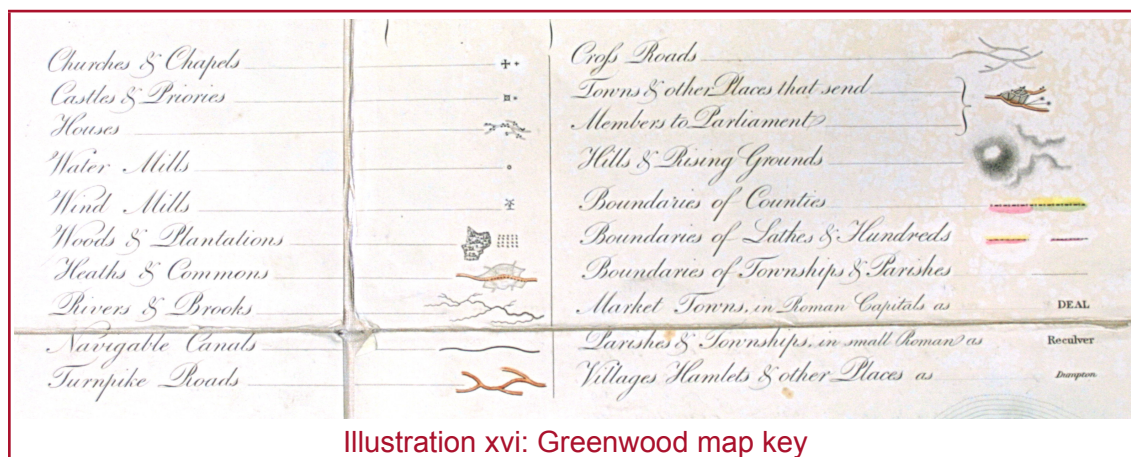 Churches & Chapels
Castles & Priories
Houses
Water Mills
Wind Mills
Woods & Plantations
Heaths & Commons
Rivers & Brooks
Navigable Canals
Turnpike Roads
Croſs Roads
Towns & other Places that send
Members to Parliament
Hills & Rising Grounds
Boundaries of Counties
Boundaries of Lathes & Hundreds
Boundaries of Townships & Parishes
Market Towns, in Roman Capitals as DEAL
Parishes & Townships, in small Roman as Reculver
Villages Hamlets & other Places as Dumpton
Illustration xvi: Greenwood map key